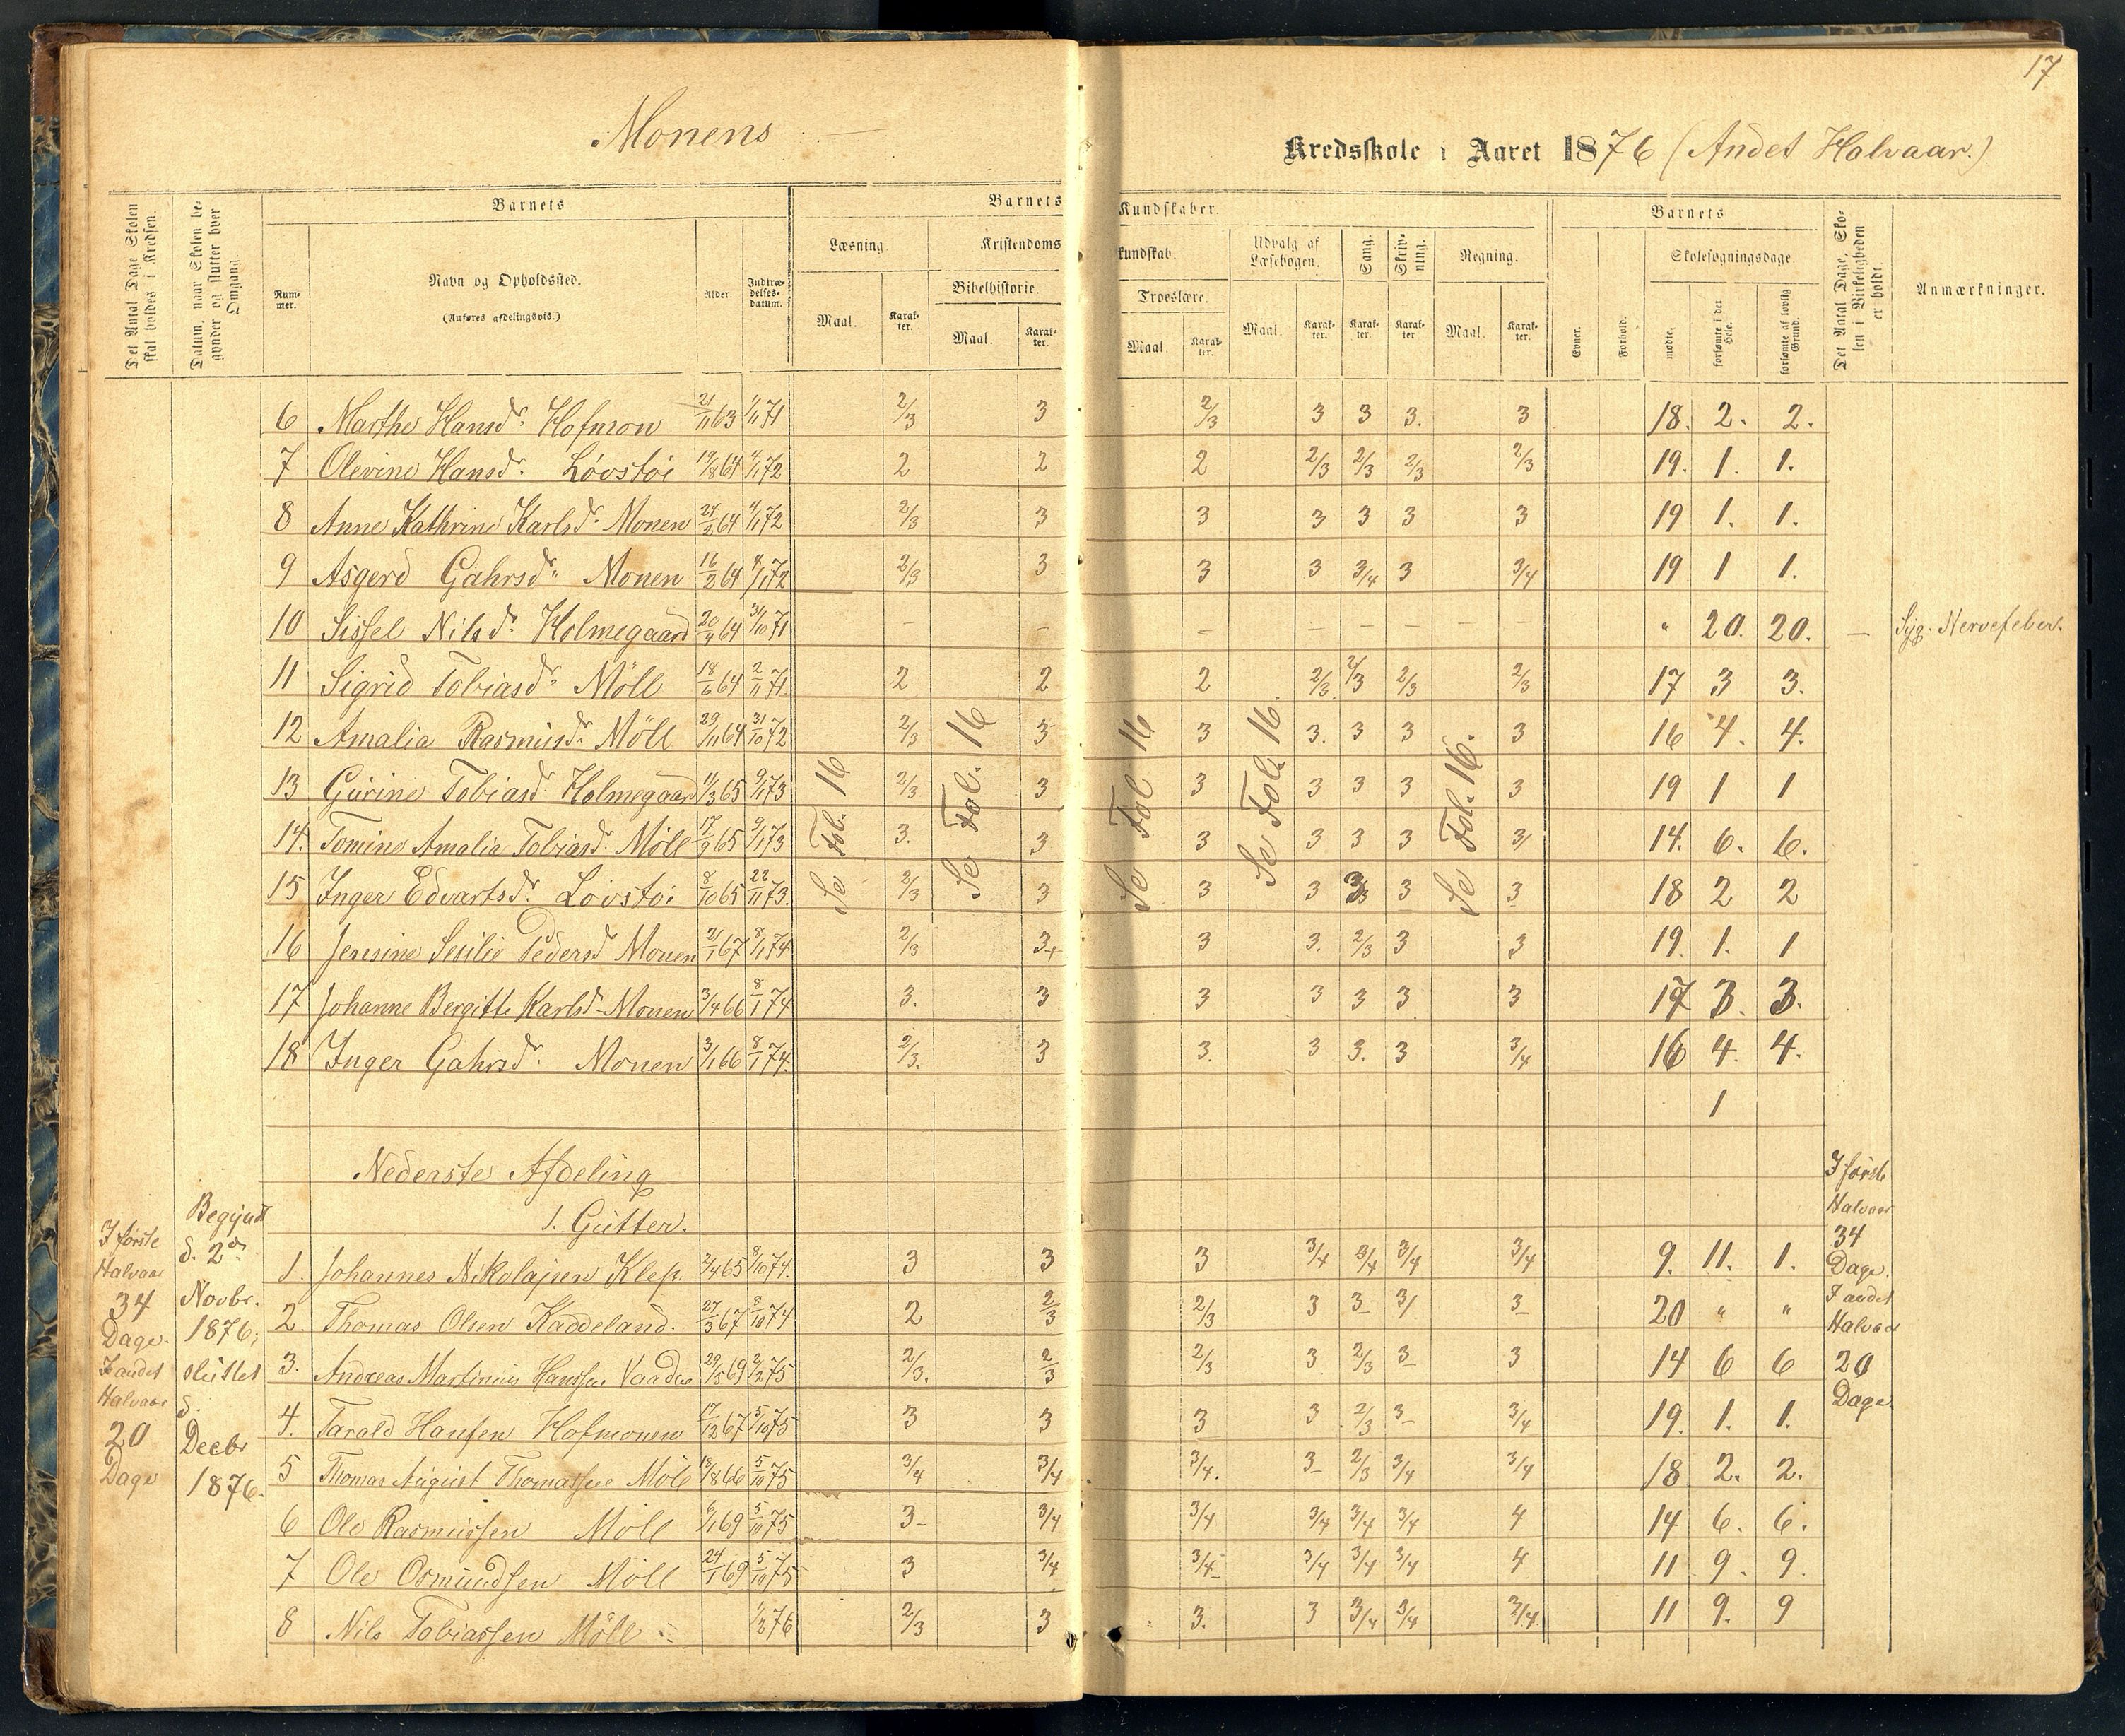 17
Monens
Kredsskole i Aaret 1876 (Andet Halvaar.)
Det Antal Dage Skolen skal holdes i Kredsen.
Datum, naar Skolen begynder og slutter hver Omgang.
Barnets
Nummer.
Navn og Opholdssted.
(Anføres afdelingsvis.)
Alder.
Indtrædelsesdatum.
Barnets Kundskaber.
Læsning.
Maal.
Karakter.
Kristendomskundskab.
Bibelhistorie.
Maal.
Karakter.
Troeslære.
Maal.
Karakter.
Udvalg af Læsebogen.
Maal.
Karakter.
Sang.
Karakter.
Skrivning.
Karakter
Regning.
Maal.
Karakter.
Barnets
Evner.
Forhold.
Skolesøgningsdage.
mødte.
forsømte i det Hele.
forsømte af lovlig Grund.
Det Antal Dage, Skolen i Virkeligheden er holdt.
Anmærkninger.
6 Marthe Hansd. Hofmon 21/11 63 1/11 71 2/3 3 2/3 3 3 3. 3 18. 2. 2.
7 Olevine Hansd. Lövstöi 19/8 64 4/1 72 2 2 2 2/3 2/3 2/3 2/3 19. 1. 1.
8 Anne Kathrine Karlsd. Monen 24/2 64 4/1 72 2/3 3 3 3 3 3 3 19 1. 1.
9 Asgerd Gahrsd. Monen 16/2 64 4/1 72 2/3 3 3 3 3/4 3 3/4 19 1 1.
10 Sissel Nilsd. Holmegaard 20/4 64 31/10 71 - - - - - - - " 20. 20. — Syg. Nervefeber.
11 Sigrid Tobiasd. Möll 18/6 64 2/11 71 2 2 2 2/3 2/3 2/3 2/3 17 3 3.
12 Amalia Rasmusd. Möll 29/11 64 31/10 72 2/3 3 3 3. 3 3 3 16 4. 4.
13 Gurine Tobiasd. Holmegaard 11/3 65 9/1 73 2/3 3 3 3 3 3 3 19 1 1
14. Tomine Amalia Tobiasd. Möll 17/9 65 9/1 73 3. 3 3 3 3 3 3 14. 6. 6.
15 Inger Edvartsd. Lövstöi 8/10 65 22/11 73. 2/3 3 3 3 3 3 3 18 2 2
16 Jensine Sesilie Pedersd Monen 21/1 67 8/1 74 2/3 3+ 3 3. 2/3 3 3 19. 1. 1
17 Johanne Bergitte Karlsd. Monen 3/4 66 8/1 74 3. 3 3 3 3 3 3 17 3. 3.
18 Inger Gahrsd. Monen 3/1 66 8/1 74. 2/3. 3 3. 3 3. 3 3/4 16 4. 4.
1
Se Fol. 16
Se Fol. 16
Se Fol 16
Se Fol. 16.
Se Fol. 16.
Nederste Afdeling
1. Gutter.
I første Halvaar 34 Dage. I andet Halvaar 20 Dage
Begyndt d. 2den Novbr. 1876; sluttet d. Decbr 1876.
1. Johannes Nikolajsen Klep. 7/4 65 8/10 74. 3 3 3 3/4 3/4 3/4 3/4 9. 11. 1.
2. Thomas Olsen Kaddeland. 27/3 67 8/10 74 2 2/3 2/3 3 3- 3/ 3- 20 " "
3. Andreas Martinius Hanssen Vaaden 29/5 69 2/2 75 2/3. 2/3 2/3 3 2/3 3- 3 14 6 6
4. Tarald Hansen Hofmonen 17/12 67 5/10 75 3 3 3 3 2/3 3- 3/4 19. 1. 1.
5 Thomas August Thomassen Möll 18/8 66 5/10 75 3/4 3/4 3/4. 3- 2/3 3/4 3/4 18 2. 2.
6 Ole Rasmussen Möll 6/1 69 5/10 75 3- 3/4 3/4 3/4 3/4 3/4 4 14 6. 6.
7 Ole Osmundsen Möll 24/1 69 5/10 75 3 3/4 3/4- 3/4 3/4 3/4 4 11 9. 9.
8 Nils Tobiassen Möll 1/2 76 2/3 3 3. 3 3/4 3/4 3/4. 11 9. 9
I første Halvaar 34 Dage. I andet Halvaar 20 Dage